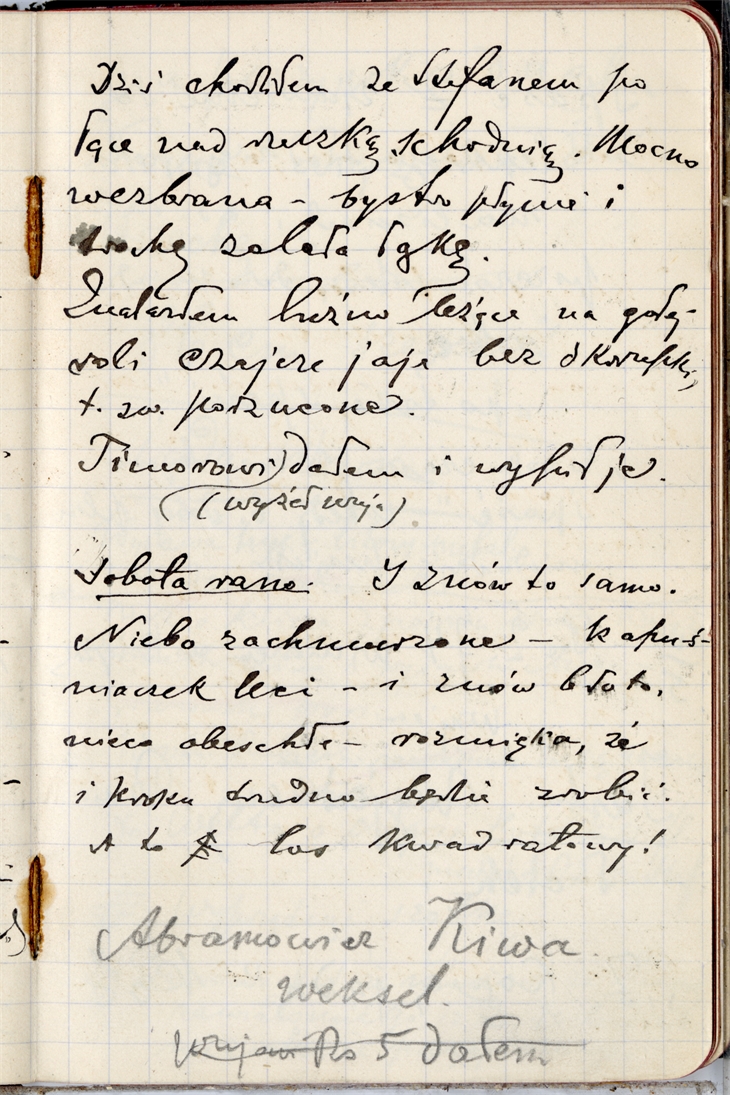 Dziś chodziłem ze Stefanem po
łące nad rzeczką Schodnią. Mocno
wezbrana – bystro płynie i
trochę zalała łąkę.
Znalazłem luźno leżące na gołej
roli czajcze jaje bez skorupki,
t. zw. porzucone.
Timorowi dałem i wypił je.
(wyżeł wuja)
Sobota rano. I znów to samo.
Niebo zachmurzone – kapuś-
niaczek leci – i znów błoto,
nieco obeschłe – rozmiękła, że
i kroku trudno będzie zrobić.
A to los kwadratowy!
Abramowicz Kiwa
weksel.
5 dałem